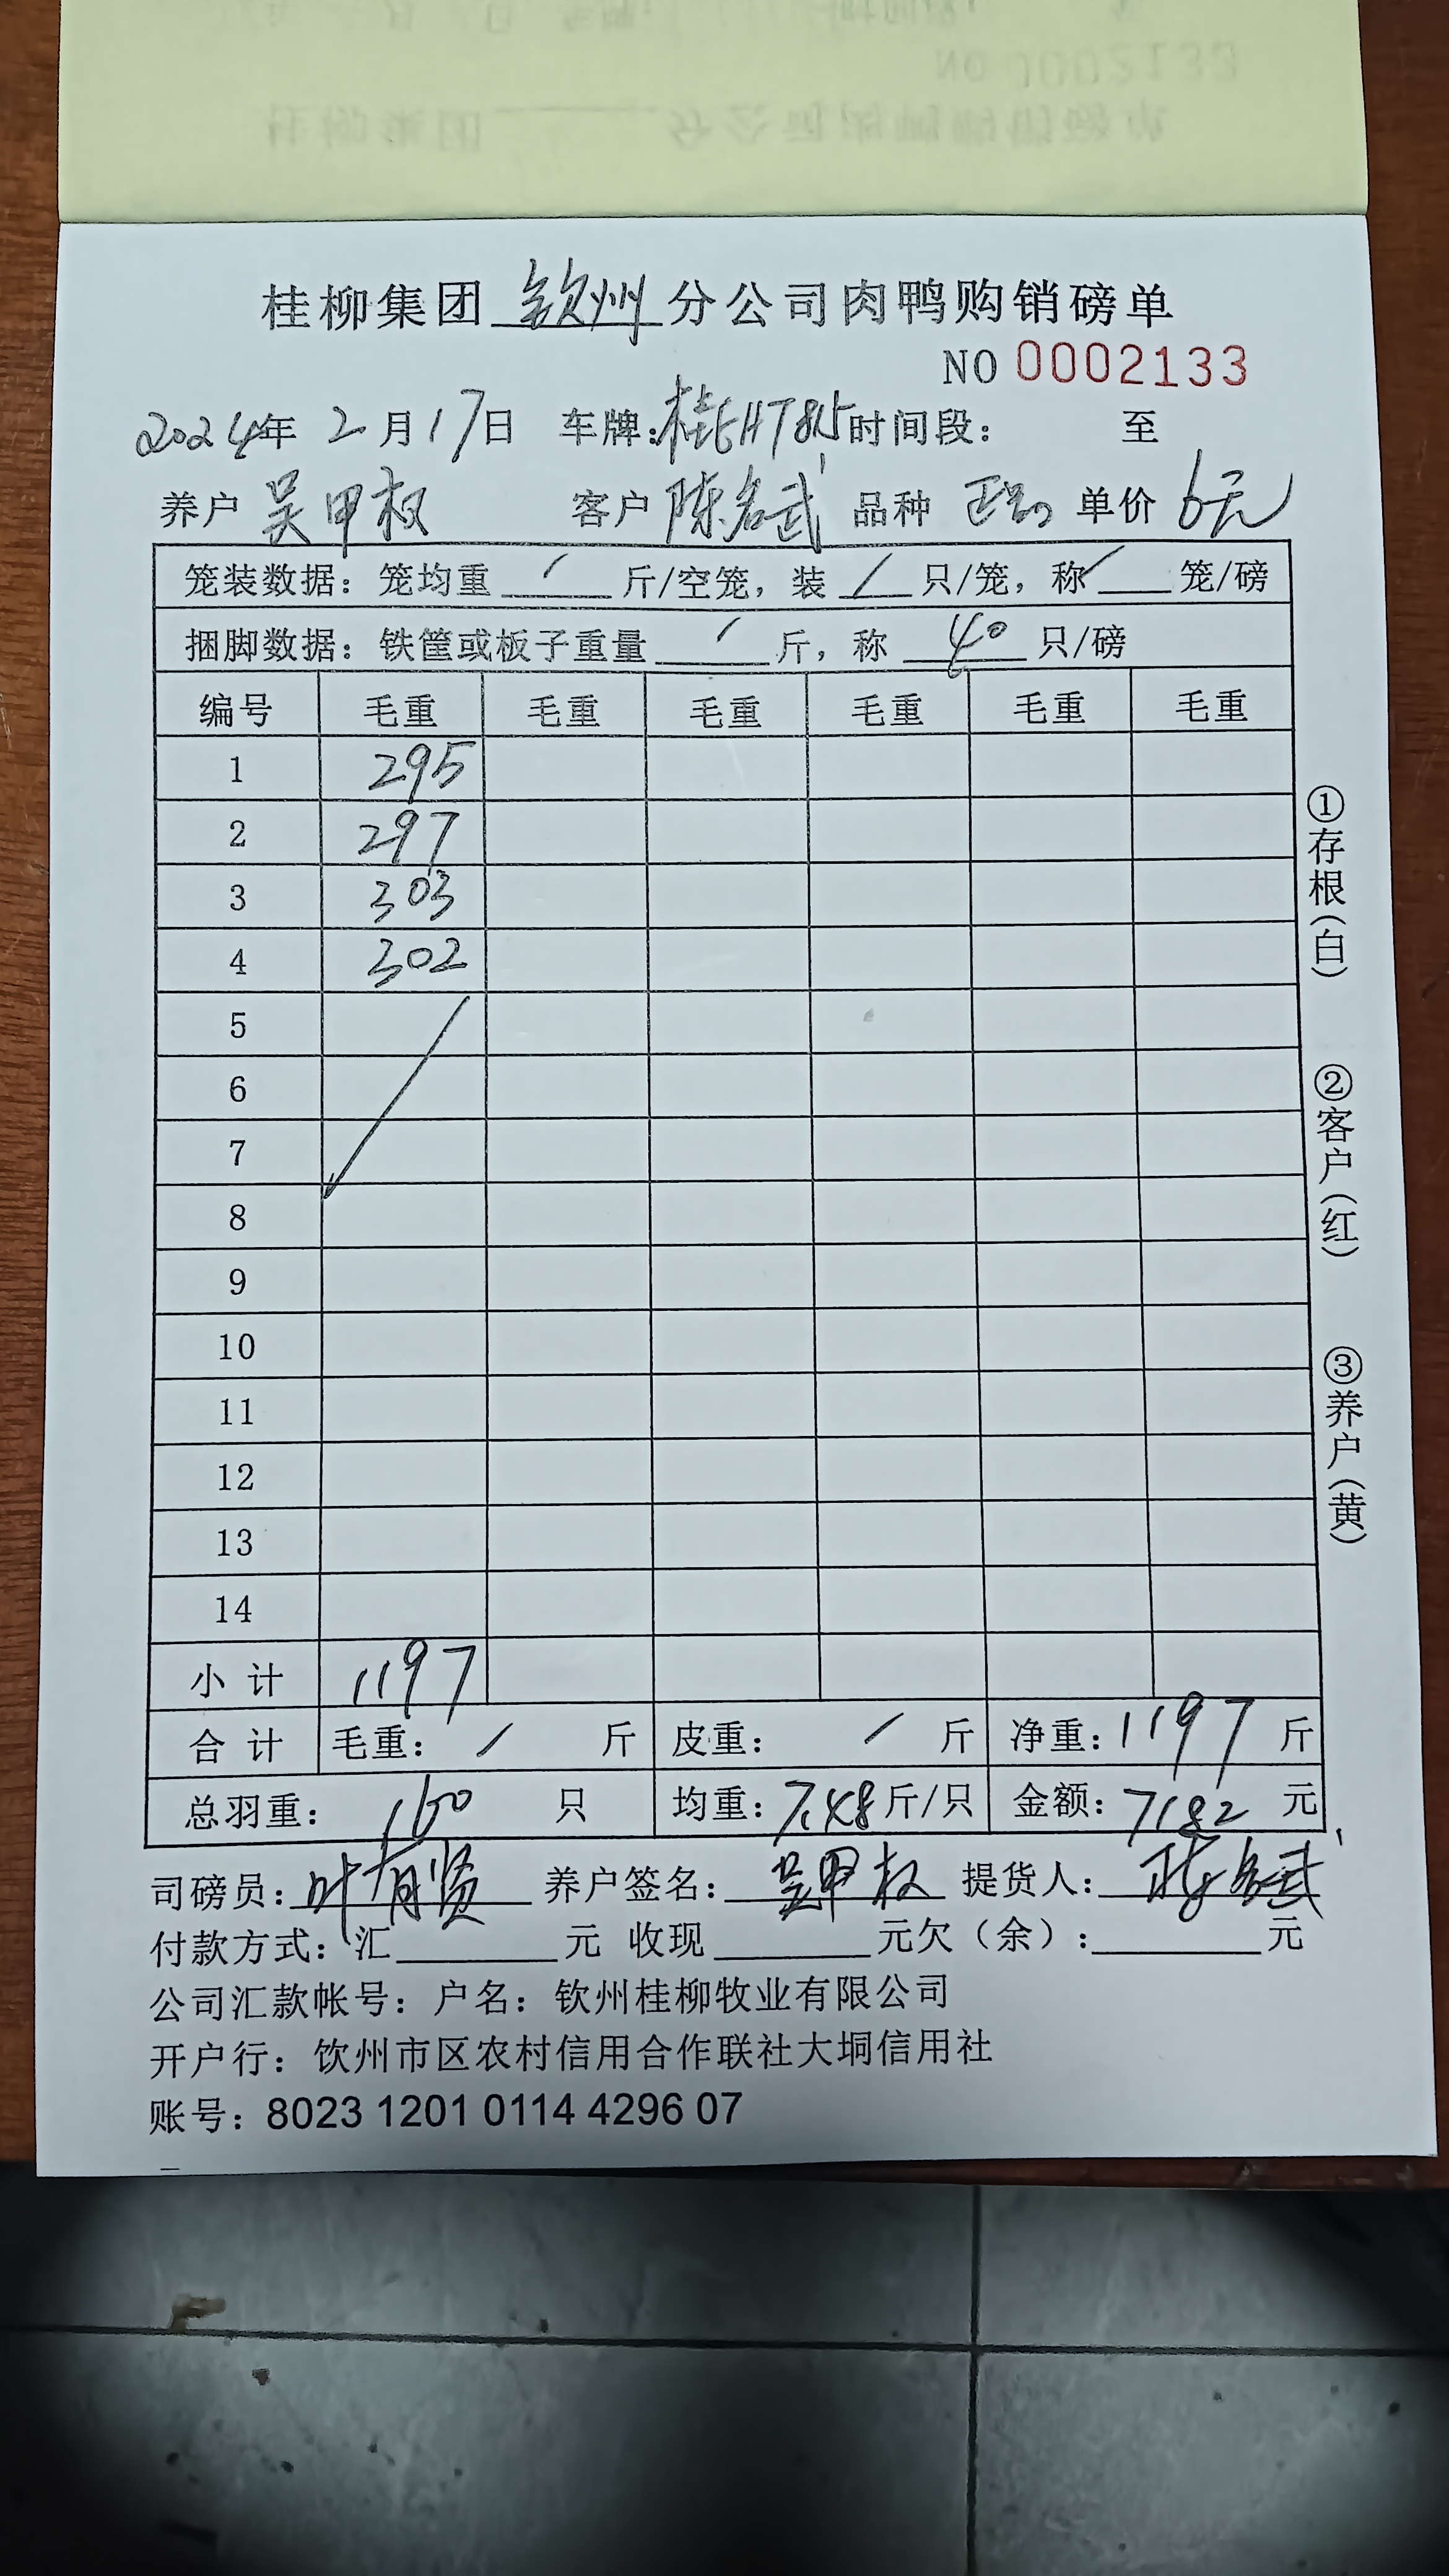 桂柳集团 钦州 分公司肉鸭购销磅单
NO 0002133
2024年 2月17日 车牌: 时间段: 至
养户 吴甲权 客户 陈名武 品种 单价 6元
笼装数据: 笼均重 / 斤/空笼, 装 / 只/笼, 称 / 笼/磅
捆脚数据: 铁筐或板子重量 / 斤, 称 40 只/磅
编号 毛重 毛重 毛重 毛重 毛重 毛重
1 295
2 297
3 303
4 302
5
6
7
8
9
10
11
12
13
14
小计 1197
合计 毛重: / 斤 皮重: / 斤 净重: 1197 斤
总羽重: 160 只 均重: 7.48 斤/只 金额: 7182 元
司磅员: 叶有贤 养户签名: 吴甲权 提货人: 陈名武
付款方式: 汇 元 收现 元欠（余）: 元
公司汇款帐号: 户名: 钦州桂柳牧业有限公司
开户行: 饮州市区农村信用合作联社大垌信用社
账号: 8023 1201 0114 4296 07
①存根(白)
②客户(红)
③养户(黄)